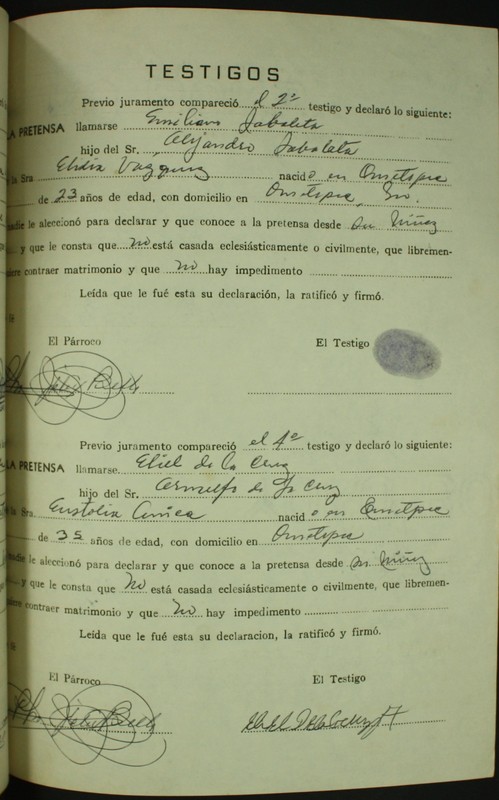 TESTIGOS
Previo juramento compareció el 2º testigo y declaró lo siguiente:
LA PRETENSA llamarse Emiliano Zabaleta
hijo del Sr. Alejandro Zabaleta
la Sra Elidia Vazquez nacido en Ometepec
de 23 años de edad, con domicilio en Ometepec, Gro.
nadie le aleccionó para declarar y que conoce a la pretensa desde su niñez
y que le consta que no está casada eclesiásticamente o civilmente, que libremen-
contraer matrimonio y que no hay impedimento
Leída que le fué esta su declaración, la ratificó y firmó.
El Párroco El Testigo
Previo juramento compareció el 4º testigo y declaró lo siguiente:
LA PRETENSA llamarse Eliel de la Cruz
hijo del Sr. Arnulfo de la Cruz
la Sra. Eustolia nacido en Ometepec
de 35 años de edad, con domicilio en Ometepec
nadie le aleccionó para declarar y que conoce a la pretensa desde su niñez
y que le consta que no está casada eclesiásticamente o civilmente, que libremen-
contraer matrimonio y que no hay impedimento
Leída que le fué esta su declaracion, la ratificó y firmó.
El Párroco El Testigo
Eliel De la Cruz H